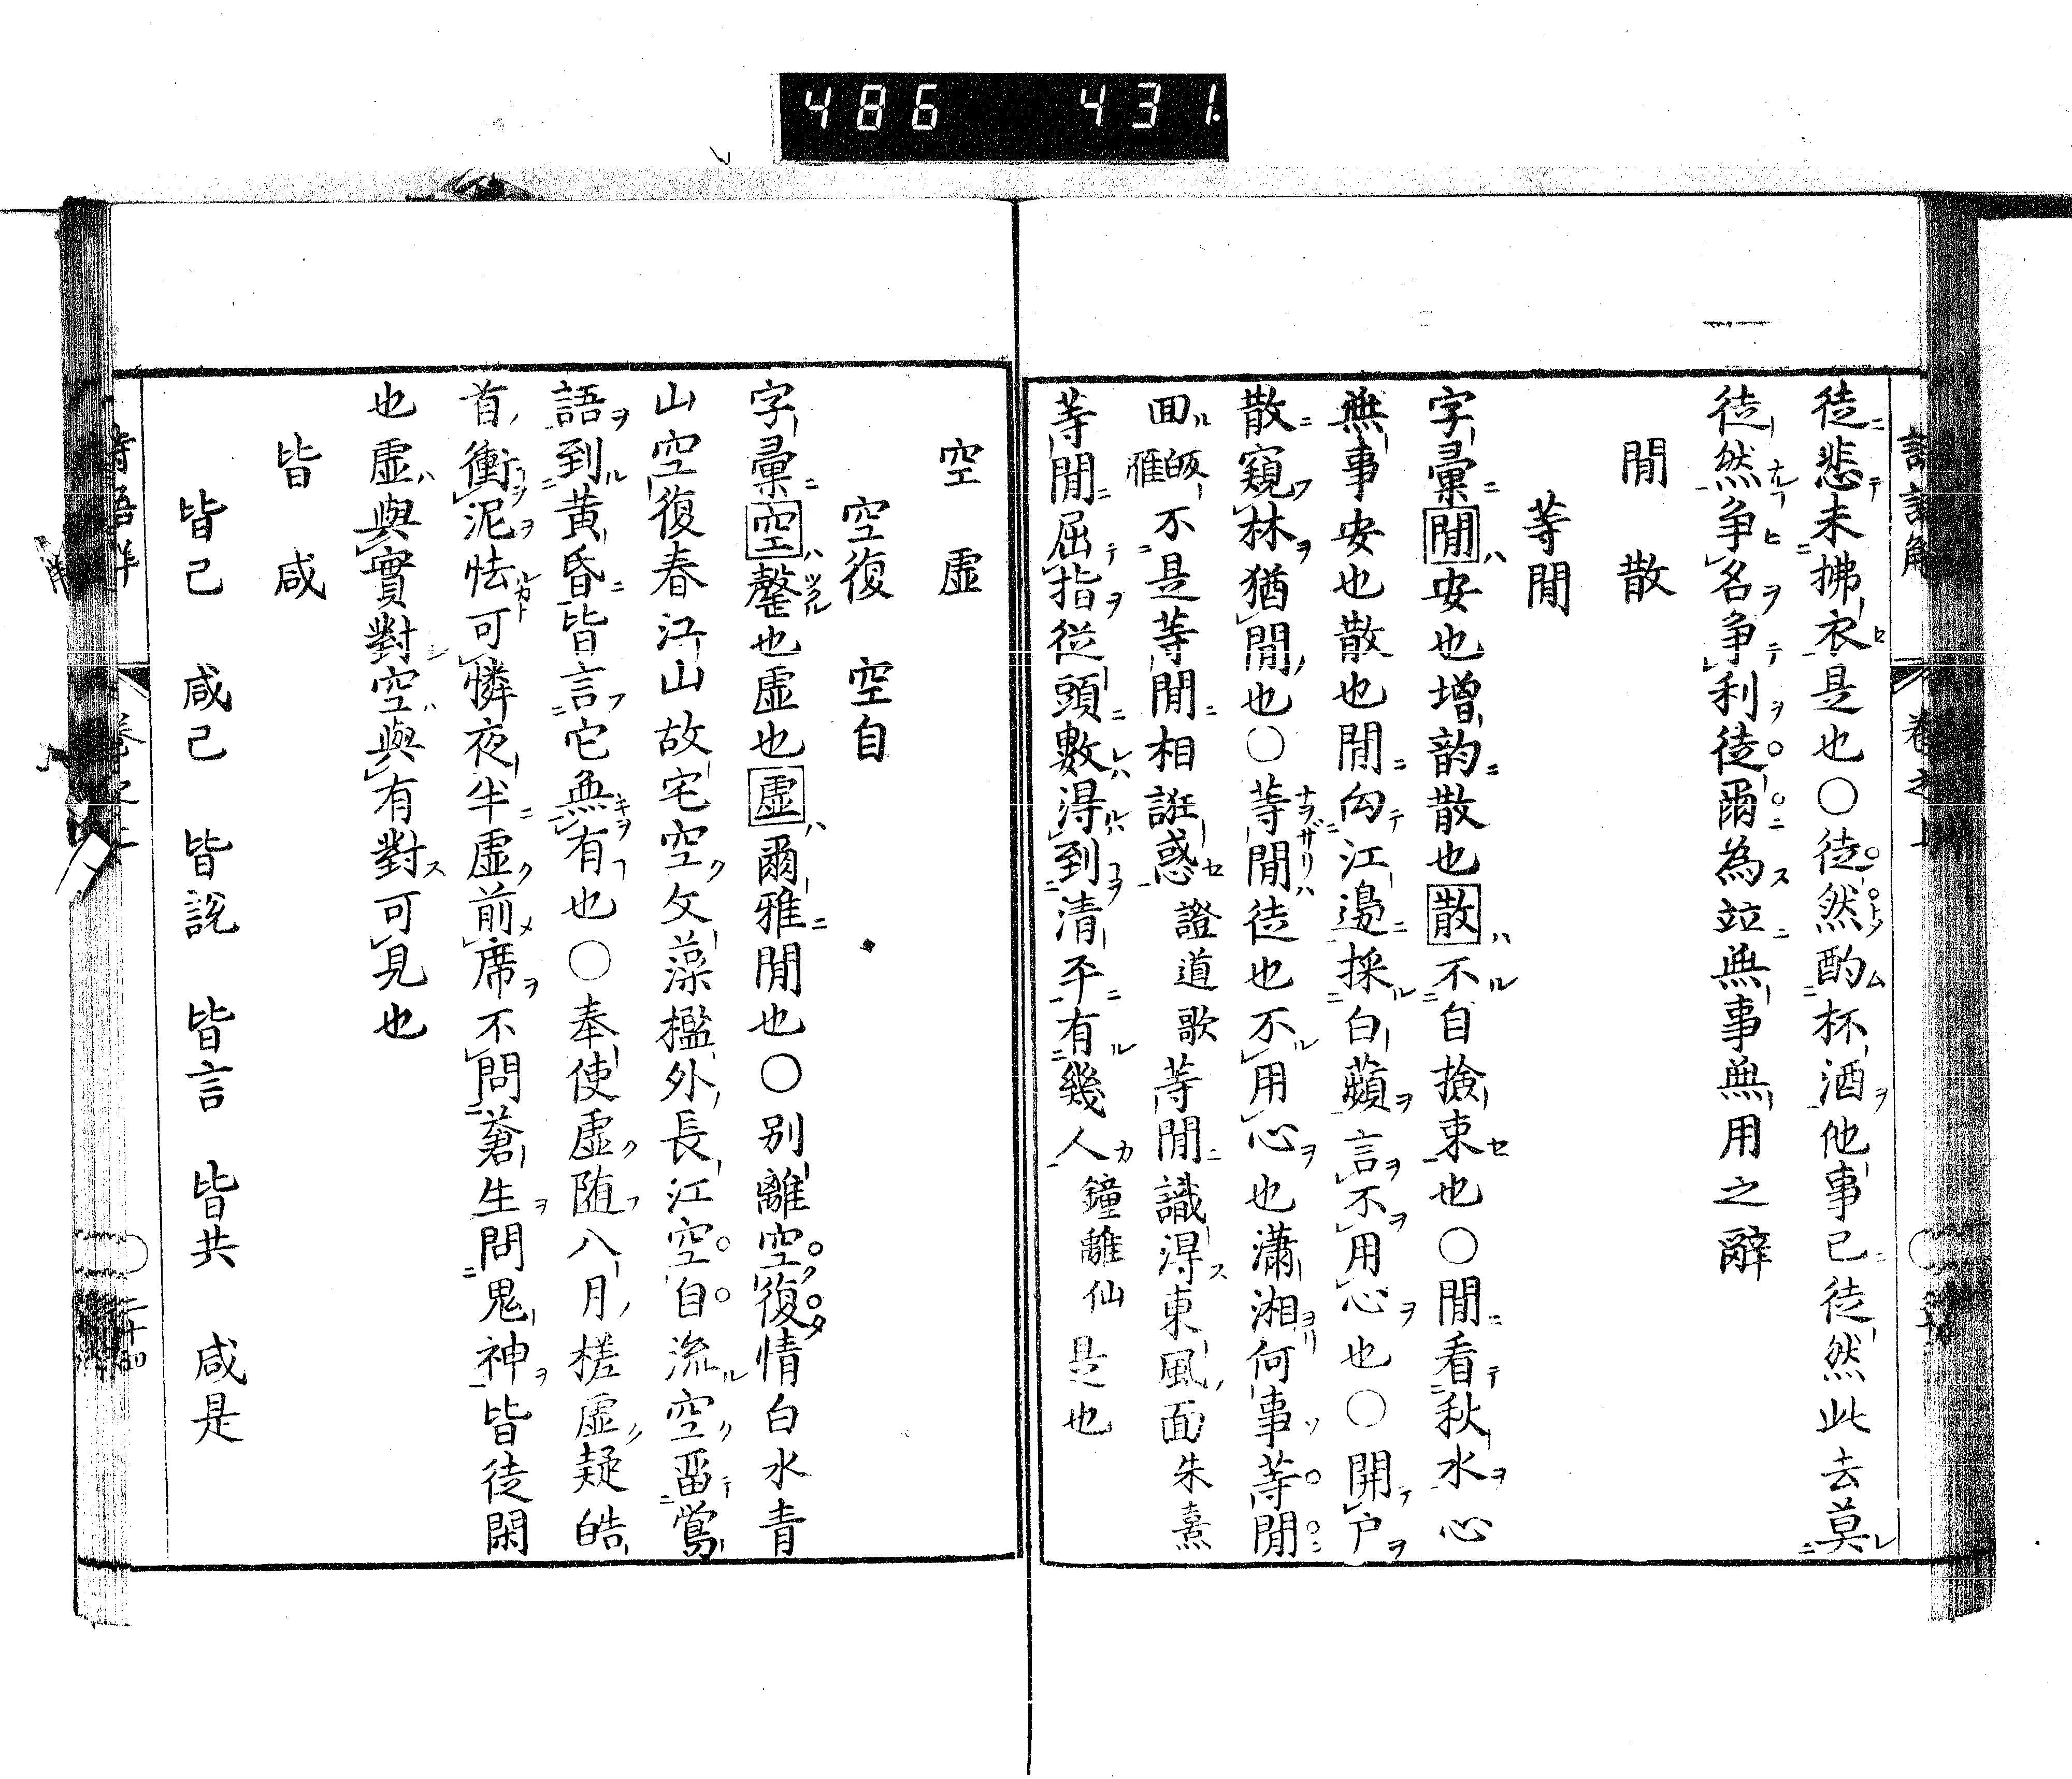 486 431
徒悲未拂衣是也〇徒然酌杯酒他事已徒然此去莫
徒然争名争利徒爾為竝無事無用之辭
閒 散
等閒
字彙閒安也增韵散也散不自撿束也〇閒看秋水心
無事安也散也閒向江邊採白蘋言不用心也〇開戸
散窺林猶閒也〇等閒徒也不用心也瀟湘何事等閒
回 不是等閒相誑惑 證道歌 等閒識得東風面 朱熹
等閒屈指従頭數得到清平有幾人 鐘離仙 是也
空 虚
空復 空自
字彙空罄也虚也虚爾雅閒也〇別離空復情白水青
山空復春江山故宅空文藻檻外長江空自流空畱鶯
語到黄昏皆言它無有也〇奉使虚随八月槎虚疑皓
首衝泥怯可憐夜半虚前席不問蒼生問鬼神皆徒閑
也虚與實對空與有對可見也
皆 咸
皆已 咸已 皆説 皆言 皆共 咸是